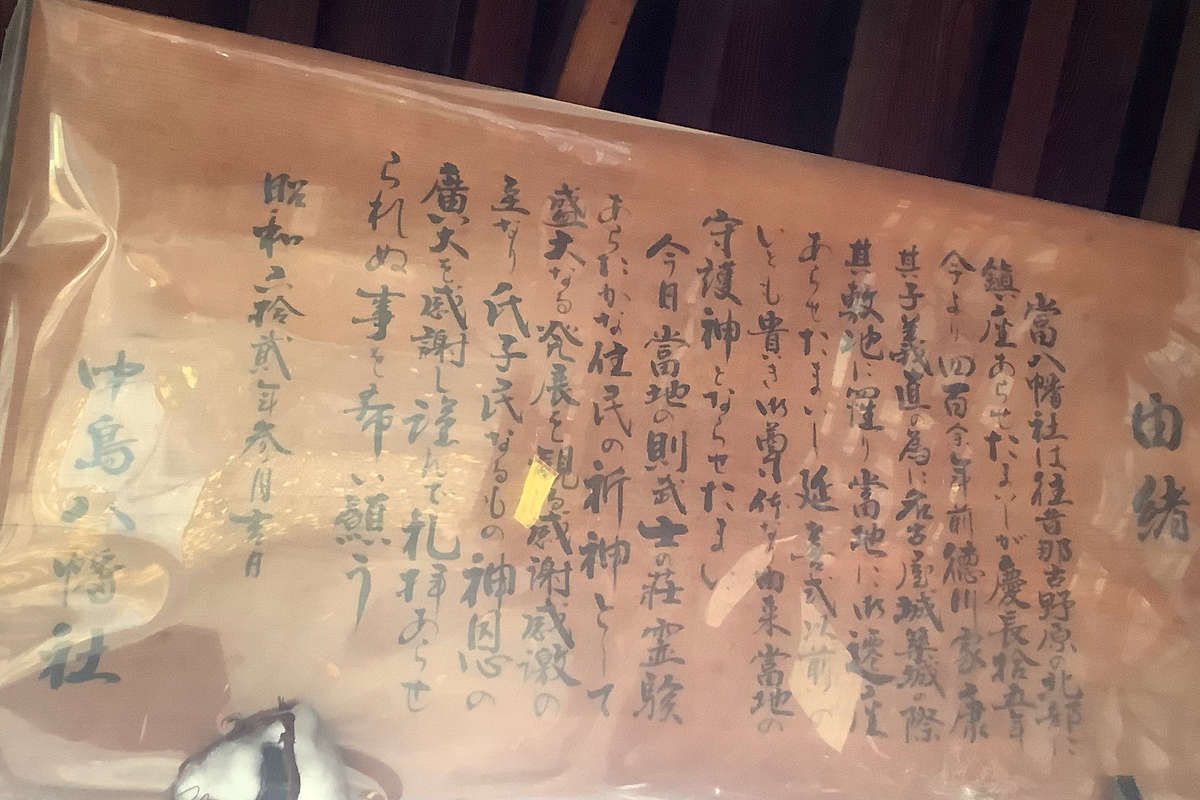 由緒
當八幡社は往昔那古野原の北部に
鎮座あらせたまいしが慶長拾五年
今より四百余年前徳川家康
其子義直の為に名古屋城築城の際
其敷地に罹り當地に御遷座
あらせたまいし延喜式以前の
いとも貴き御尊体な由来當地の
守護神とならせたまい
今日當地の則武士の荘霊験
あらたかな住民の祈神として
盛大なる発展を観る感謝感激の
至なり氏子民なるもの神恩の
廣大を感謝し謹んで礼拝あらせ
られぬ事を希い願う
昭和三拾貳年参月吉日
中島八幡社